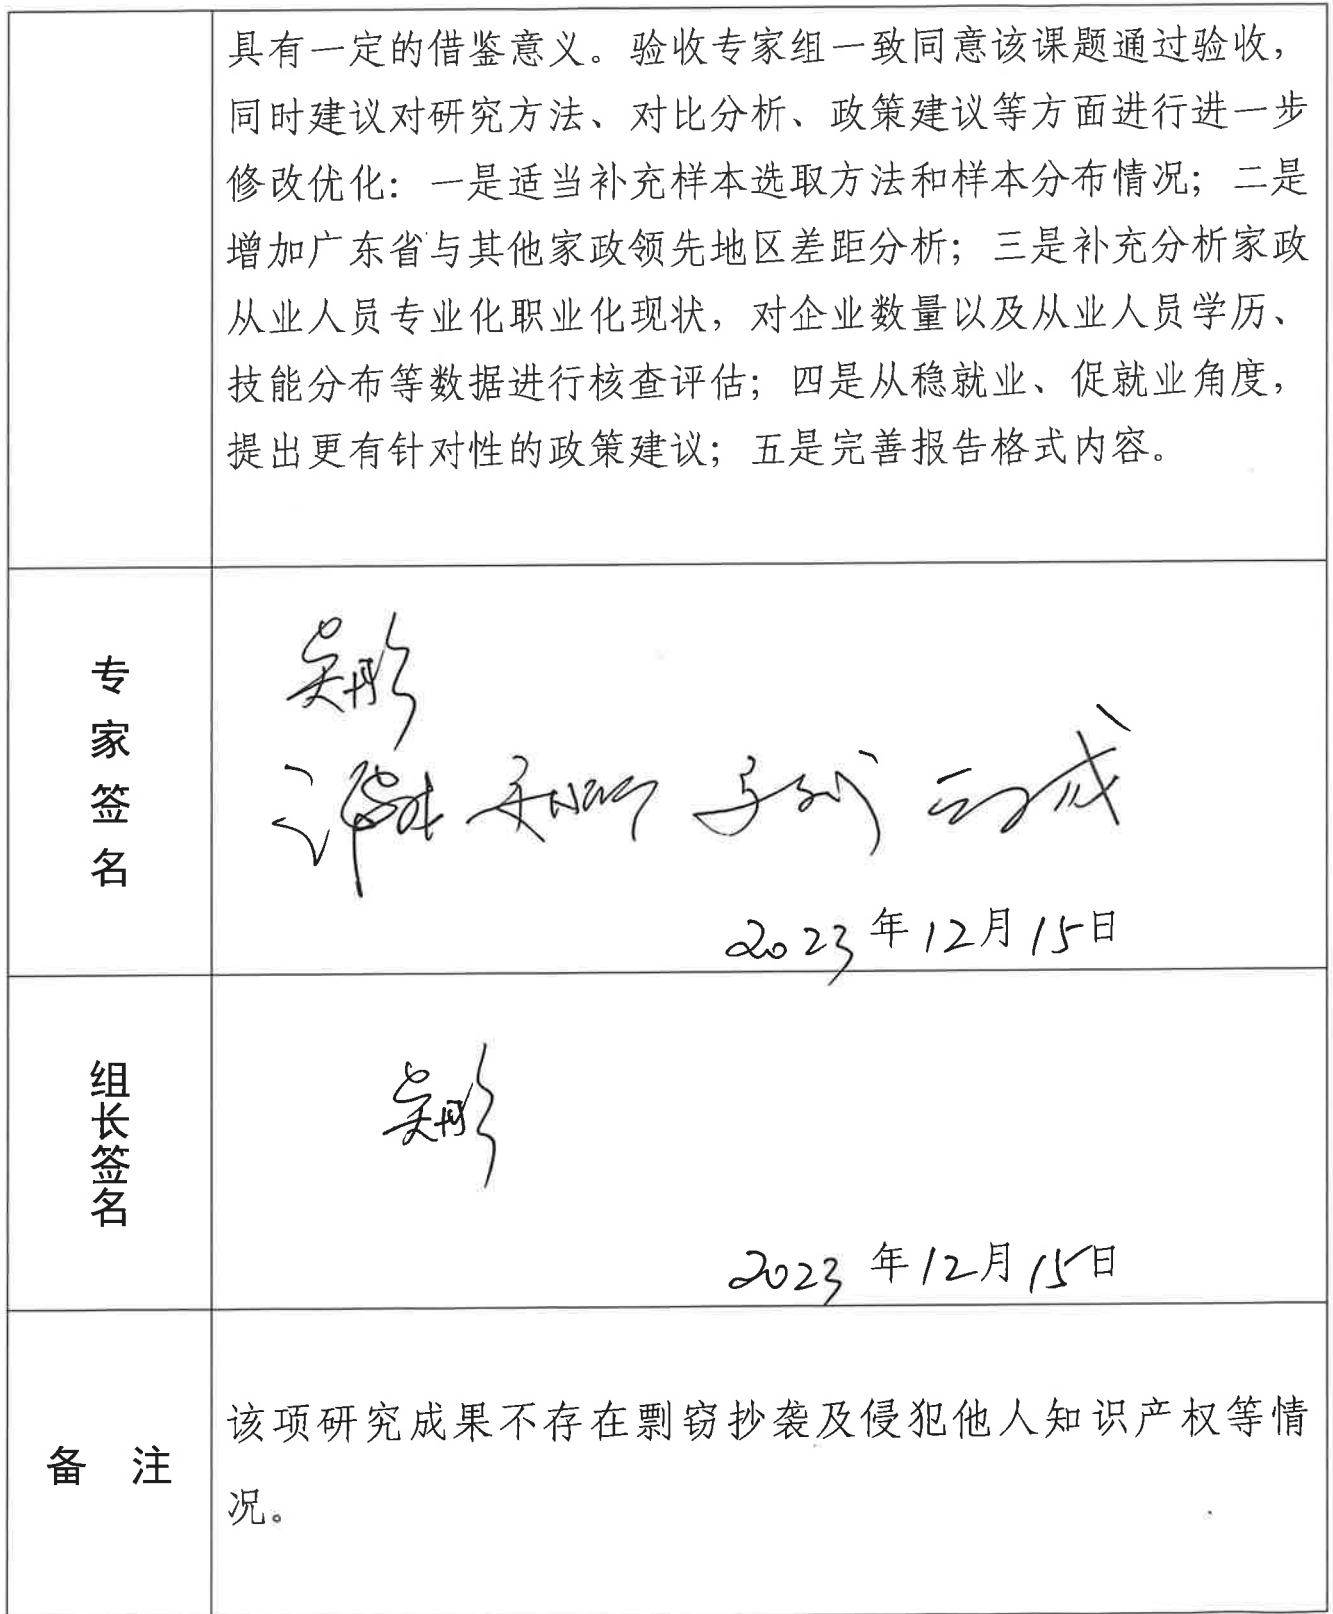 具有一定的借鉴意义。验收专家组一致同意该课题通过验收，
同时建议对研究方法、对比分析、政策建议等方面进行进一步
修改优化：一是适当补充样本选取方法和样本分布情况；二是
增加广东省与其他家政领先地区差距分析；三是补充分析家政
从业人员专业化职业化现状，对企业数量以及从业人员学历、
技能分布等数据进行核查评估；四是从稳就业、促就业角度，
提出更有针对性的政策建议；五是完善报告格式内容。
专家签名
吴彤
2023年12月15日
组长签名
吴彤
2023年12月15日
备 注
该项研究成果不存在剽窃抄袭及侵犯他人知识产权等情
况。